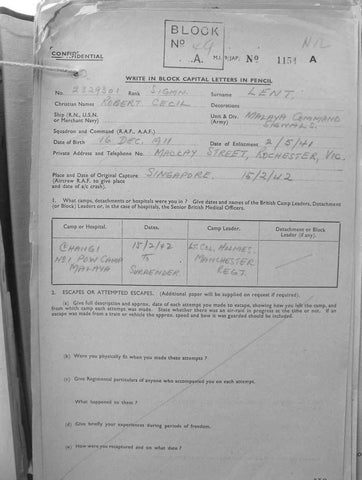 BLOCK
No 49
NR
CONFIDENTIAL
A. M.I. 9/JAP/ No 1154 A
WRITE IN BLOCK CAPITAL LETTERS IN PENCIL
No. 2329301 Rank SIGMN. Surname LENT.
Christian Names ROBERT CECIL Decorations
Ship (R.N., U.S.N. or Merchant Navy) Unit & Div. (Army) MALAYA COMMAND SIGNALS.
Squadron and Command (R.A.F., A.A.F.)
Date of Birth 16 DEC. 1911 Date of Enlistment 2/5/41
Private Address and Telephone No. MACLAY STREET, ROCHESTER, VIC.
Place and Date of Original Capture SINGAPORE. 15/2/42
(Aircrew R.A.F. to give place and date of a/c crash).
1. What camps, detachments or hospitals were you in? Give dates and names of the British Camp Leaders, Detachment
(or Block) Leaders or, in the case of hospitals, the Senior British Medical Officers.
Camp or Hospital. Dates. Camp Leader. Detachment or Block Leader (if any).
CHANGI 15/2/42 LT. COL. HOLMES.
No 1 POW CAMP TO MANCHESTER
MALAYA SURRENDER REGT.
2. ESCAPES OR ATTEMPTED ESCAPES. (Additional paper will be supplied on request if required).
(a) Give full description and approx. date of each attempt you made to escape, showing how you left the camp, and
from which camp each attempt was made. State whether there was an air-raid in progress at the time or not. If an
escape was made from a train or vehicle the approx. speed and how it was guarded should be included.
(b) Were you physically fit when you made these attempts?
(c) Give Regimental particulars of anyone who accompanied you on each attempt.
What happened to them?
(d) Give briefly your experiences during periods of freedom.
(e) How were you recaptured and on what date?